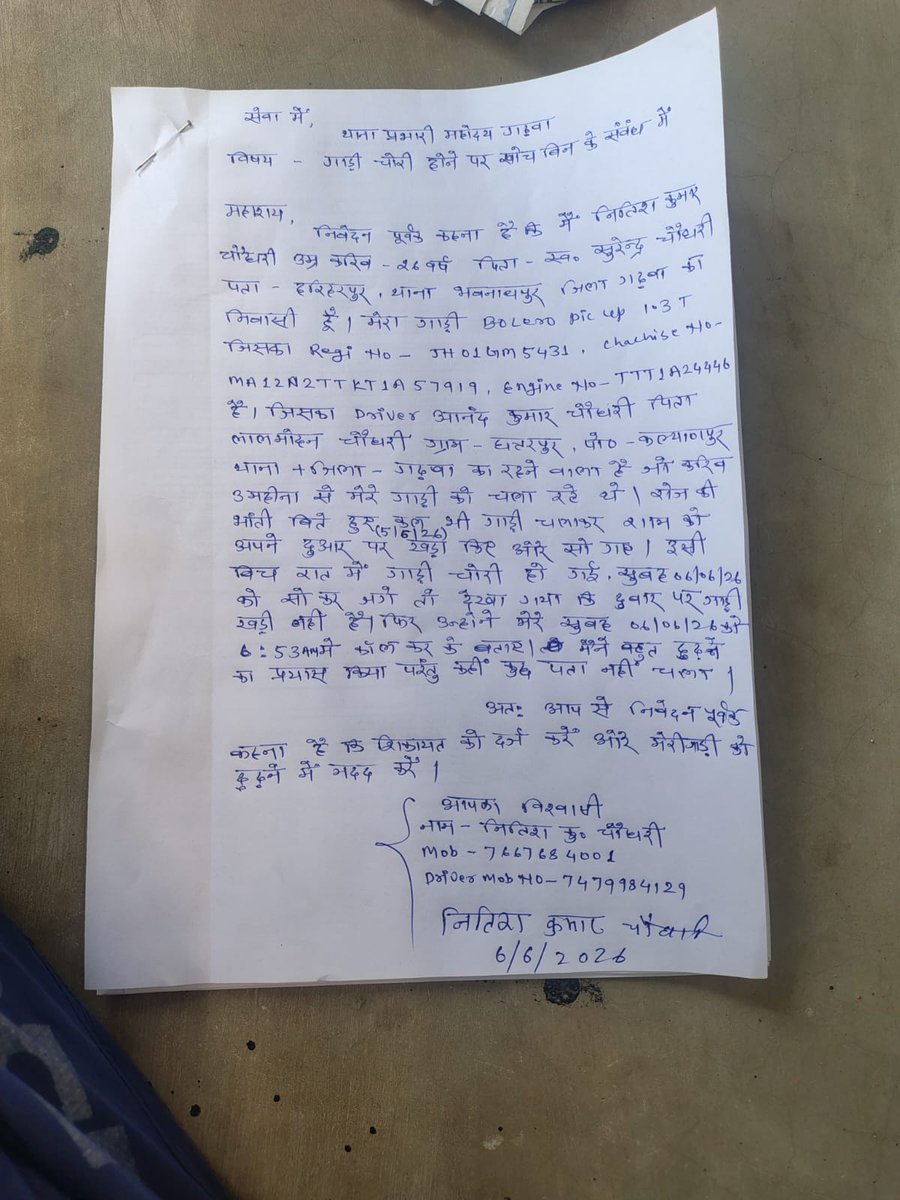 सेवा में,
थाना प्रभारी महोदय गढ़वा
विषय - गाड़ी चोरी होने पर खोच बिन के संबंध में
महाशय,
निवेदन पूर्वक कहना है कि मैं नितिश कुमार
चौधरी उम्र करिब - 26 वर्ष पिता - स्व० सुरेन्द्र चौधरी
पता - हरिहरपुर, थाना भवनाथपुर जिला गढ़वा का
निवासी हूँ। मेरा गाड़ी Bolero pic up 1.3 T
जिसका Regi No - JH01GM5431, Chachise No-
MA12N2TTKT1A57919, Engine No- TTT1A24446
है। जिसका Driver आनंद कुमार चौधरी पिता
लालमोहन चौधरी ग्राम - छतरपुर, पो० - कल्याणपुर
थाना + जिला - गढ़वा का रहने वाला है जो करिब
3 महीना से मेरे गाड़ी को चला रहे थे। रोज की
भांती बिते हुए कल (5/6/26) भी गाड़ी चलाकर शाम को
अपने दुआर पर खड़ा किए और सो गए। इसी
बिच रात में गाड़ी चोरी हो गई, सुबह 06/06/26
को सो कर जगे तो देखा गया कि दुवार पर गाड़ी
खड़ी नहीं है। फिर उन्होने मेरे सुबह 06/06/26 को
6:53AM में कॉल कर के बताए। मैंने बहुत ढुढ़ने
का प्रयास किया परंतु कहीं कुछ पता नहीं चला।
अतः आप से निवेदन पूर्वक
कहना है कि शिकायत को दर्ज करें और मेरी गाड़ी को
ढुढ़ने में मदद करें।
आपका विश्वासी
नाम - नितिश कु० चौधरी
Mob - 7667684001
Driver Mob No - 7479984129
नितिश कुमार चौधरी
6/6/2026